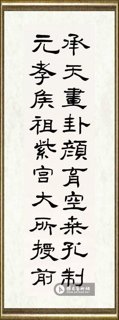 承天畫卦顏育空桒孔制
元孝俱祖紫宮大所授前